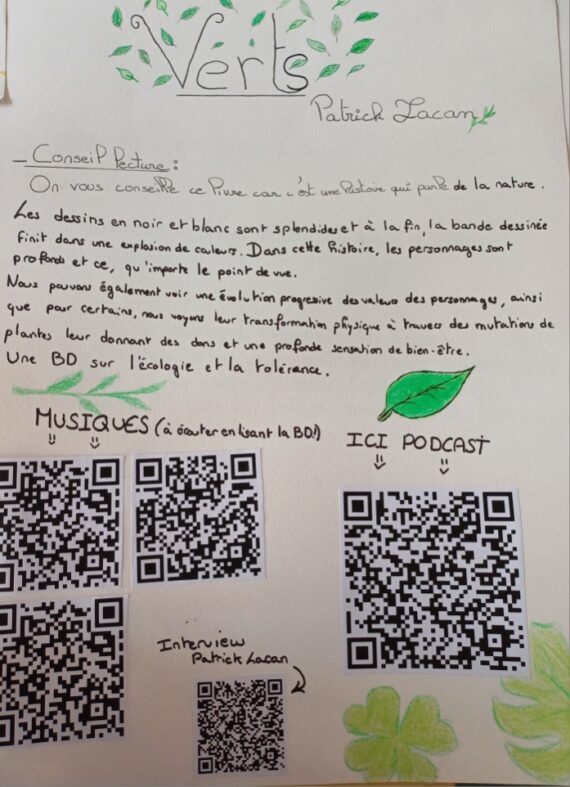 Verts
Patrick Lacan
- Conseil lecture :
On vous conseille ce livre car c'est une histoire qui parle de la nature.
Les dessins en noir et blanc sont splendides et à la fin, la bande dessinée
finit dans une explosion de couleurs. Dans cette histoire, les personnages sont
profonds et ce, qu'importe le point de vue.
Nous pouvons également voir une évolution progresive des valeurs des personnages, ainsi
que pour certains, nous voyons leur transformation physique à travers des mutations de
plantes leur donnant des dons et une profonde sensation de bien-être.
Une BD sur l'écologie et la tolérance.
MUSIQUES (à écouter en lisant la BD!)
ICI PODCAST
Interview
Patrick Lacan